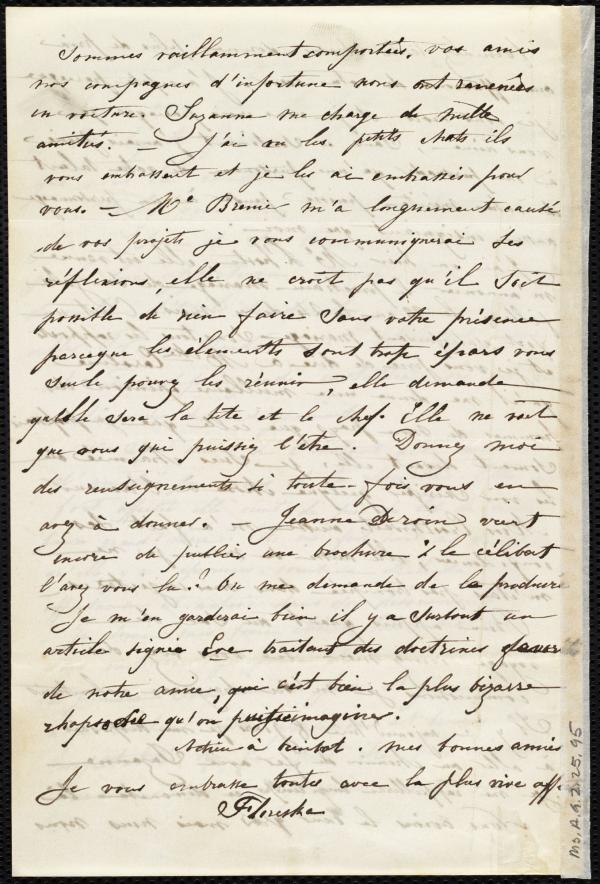 sommes vaillamment comportées, vos amies
nos compagnes d'infortune nous ont ramenées
en voiture. Suzanne me charge de mille
amitiés. — J'ai vu les petits chats ils
vous embrassent et je les ai embrassés pour
vous. — Me Brenier m'a longuement causé
de vos projets je vous communiquerai ses
réflexions, elle ne croit pas qu'il soit
possible de rien faire sans votre présence
parceque les éléments sont trop épars vous
seule pouvez les réunir, elle demande
quelle sera la tete et le chef. Elle ne voit
que vous qui puissiez l'etre. Donnez moi
des renseignements si toute-fois vous en
avez à donner. — Jeanne Deroin vient
encore de publier une brochure le célibat
l'avez vous lu? On me demande de le produire
Je m'en garderai bien il y a surtout un
article signé Eve traitant des doctrines
de notre amie, qui c'est bien la plus bizarre
rhapsodie qu'on puisse imaginer.
Adieu à bientot. mes bonnes amies
Je vous embrasse toutes avec la plus vive aff.
Floreska
Ms. A. 9. 2. 25. 95